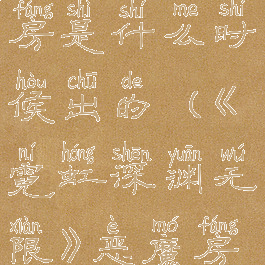 fáng shì shí me shí
房是什么时
hòu chū de
候出的（《
ní hóng shēn yuān wú
霓虹深渊无
xiàn è mó fáng
限》恶魔房